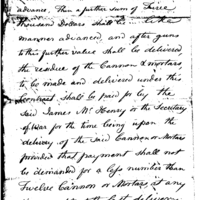 advance. Then a further sum of Three
Thousand Dollars shall be in like
manner advanced, and after guns
to this further value shall be delivered
the residue of the Cannon & mortars
to be made and delivered under this
Contract shall be paid for by the
said James McHenry or the Secretary
of War for the time being upon the
delivery of the said Cannon or Mortars
provided that payment shall not
be demanded for a less number than
Twelve Cannon or Mortars at any